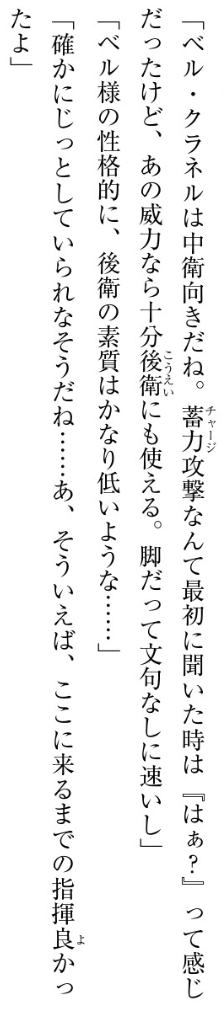 「ベル・クラネルは中衛向きだね。蓄力攻撃なんて最初に聞いた時は『はぁ？』って感じ
だったけど、あの威力なら十分後衛にも使える。脚だって文句なしに速いし」
「ベル様の性格的に、後衛の素質はかなり低いような……」
「確かにじっとしていられなそうだね……あ、そういえば、ここに来るまでの指揮良かっ
たよ」